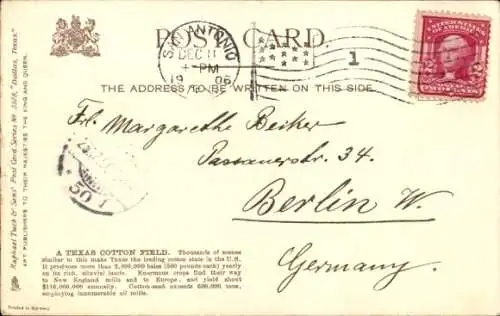 POST CARD.
SAN ANTONIO
DEC 11
4-PM
1906
1
UNITED STATES OF AMERICA
THE ADDRESS TO BE WRITTEN ON THIS SIDE.
Frl. Margarethe Becker
Passauerstr. 34.
Berlin W.
Germany.
50
A TEXAS COTTON FIELD. Thousands of scenes
similar to this make Texas the leading cotton state in the U.S.
It produces more than 2,000,000 bales (500 pounds each) yearly
on its rich, alluvial lands. Enormous crops find their way
to New England mills and to Europe, and yield about
$110,000,000 annually. Cotton-seed exceeds 600,000 tons,
employing innumerable oil mills.
Raphael Tuck & Sons' Post Card Series No. "Dallas, Texas."
ART PUBLISHERS TO THEIR MAJESTIES THE KING AND QUEEN.
Printed in Germany